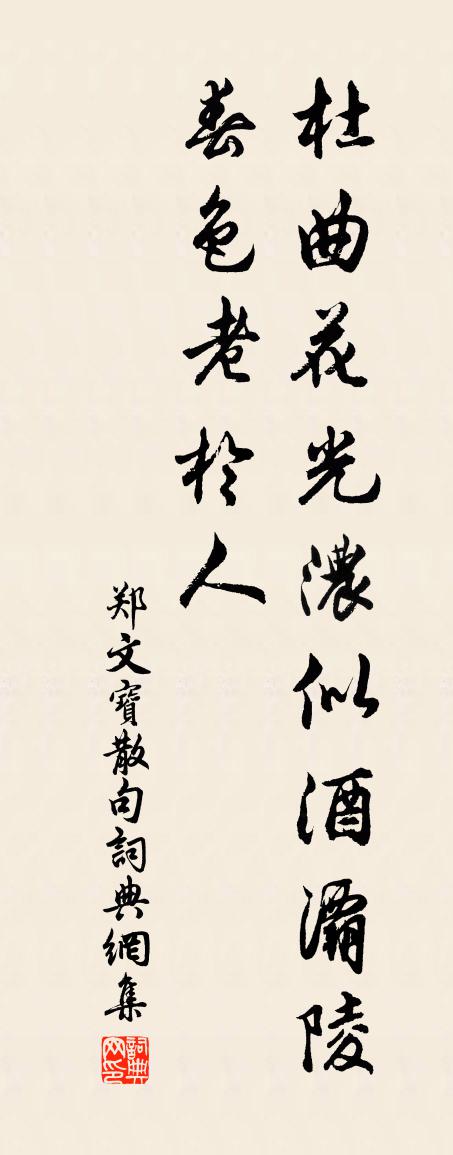 杜曲花光濃似酒灞陵
春色老於人
郑文寳散句詞典網集
詞典网印